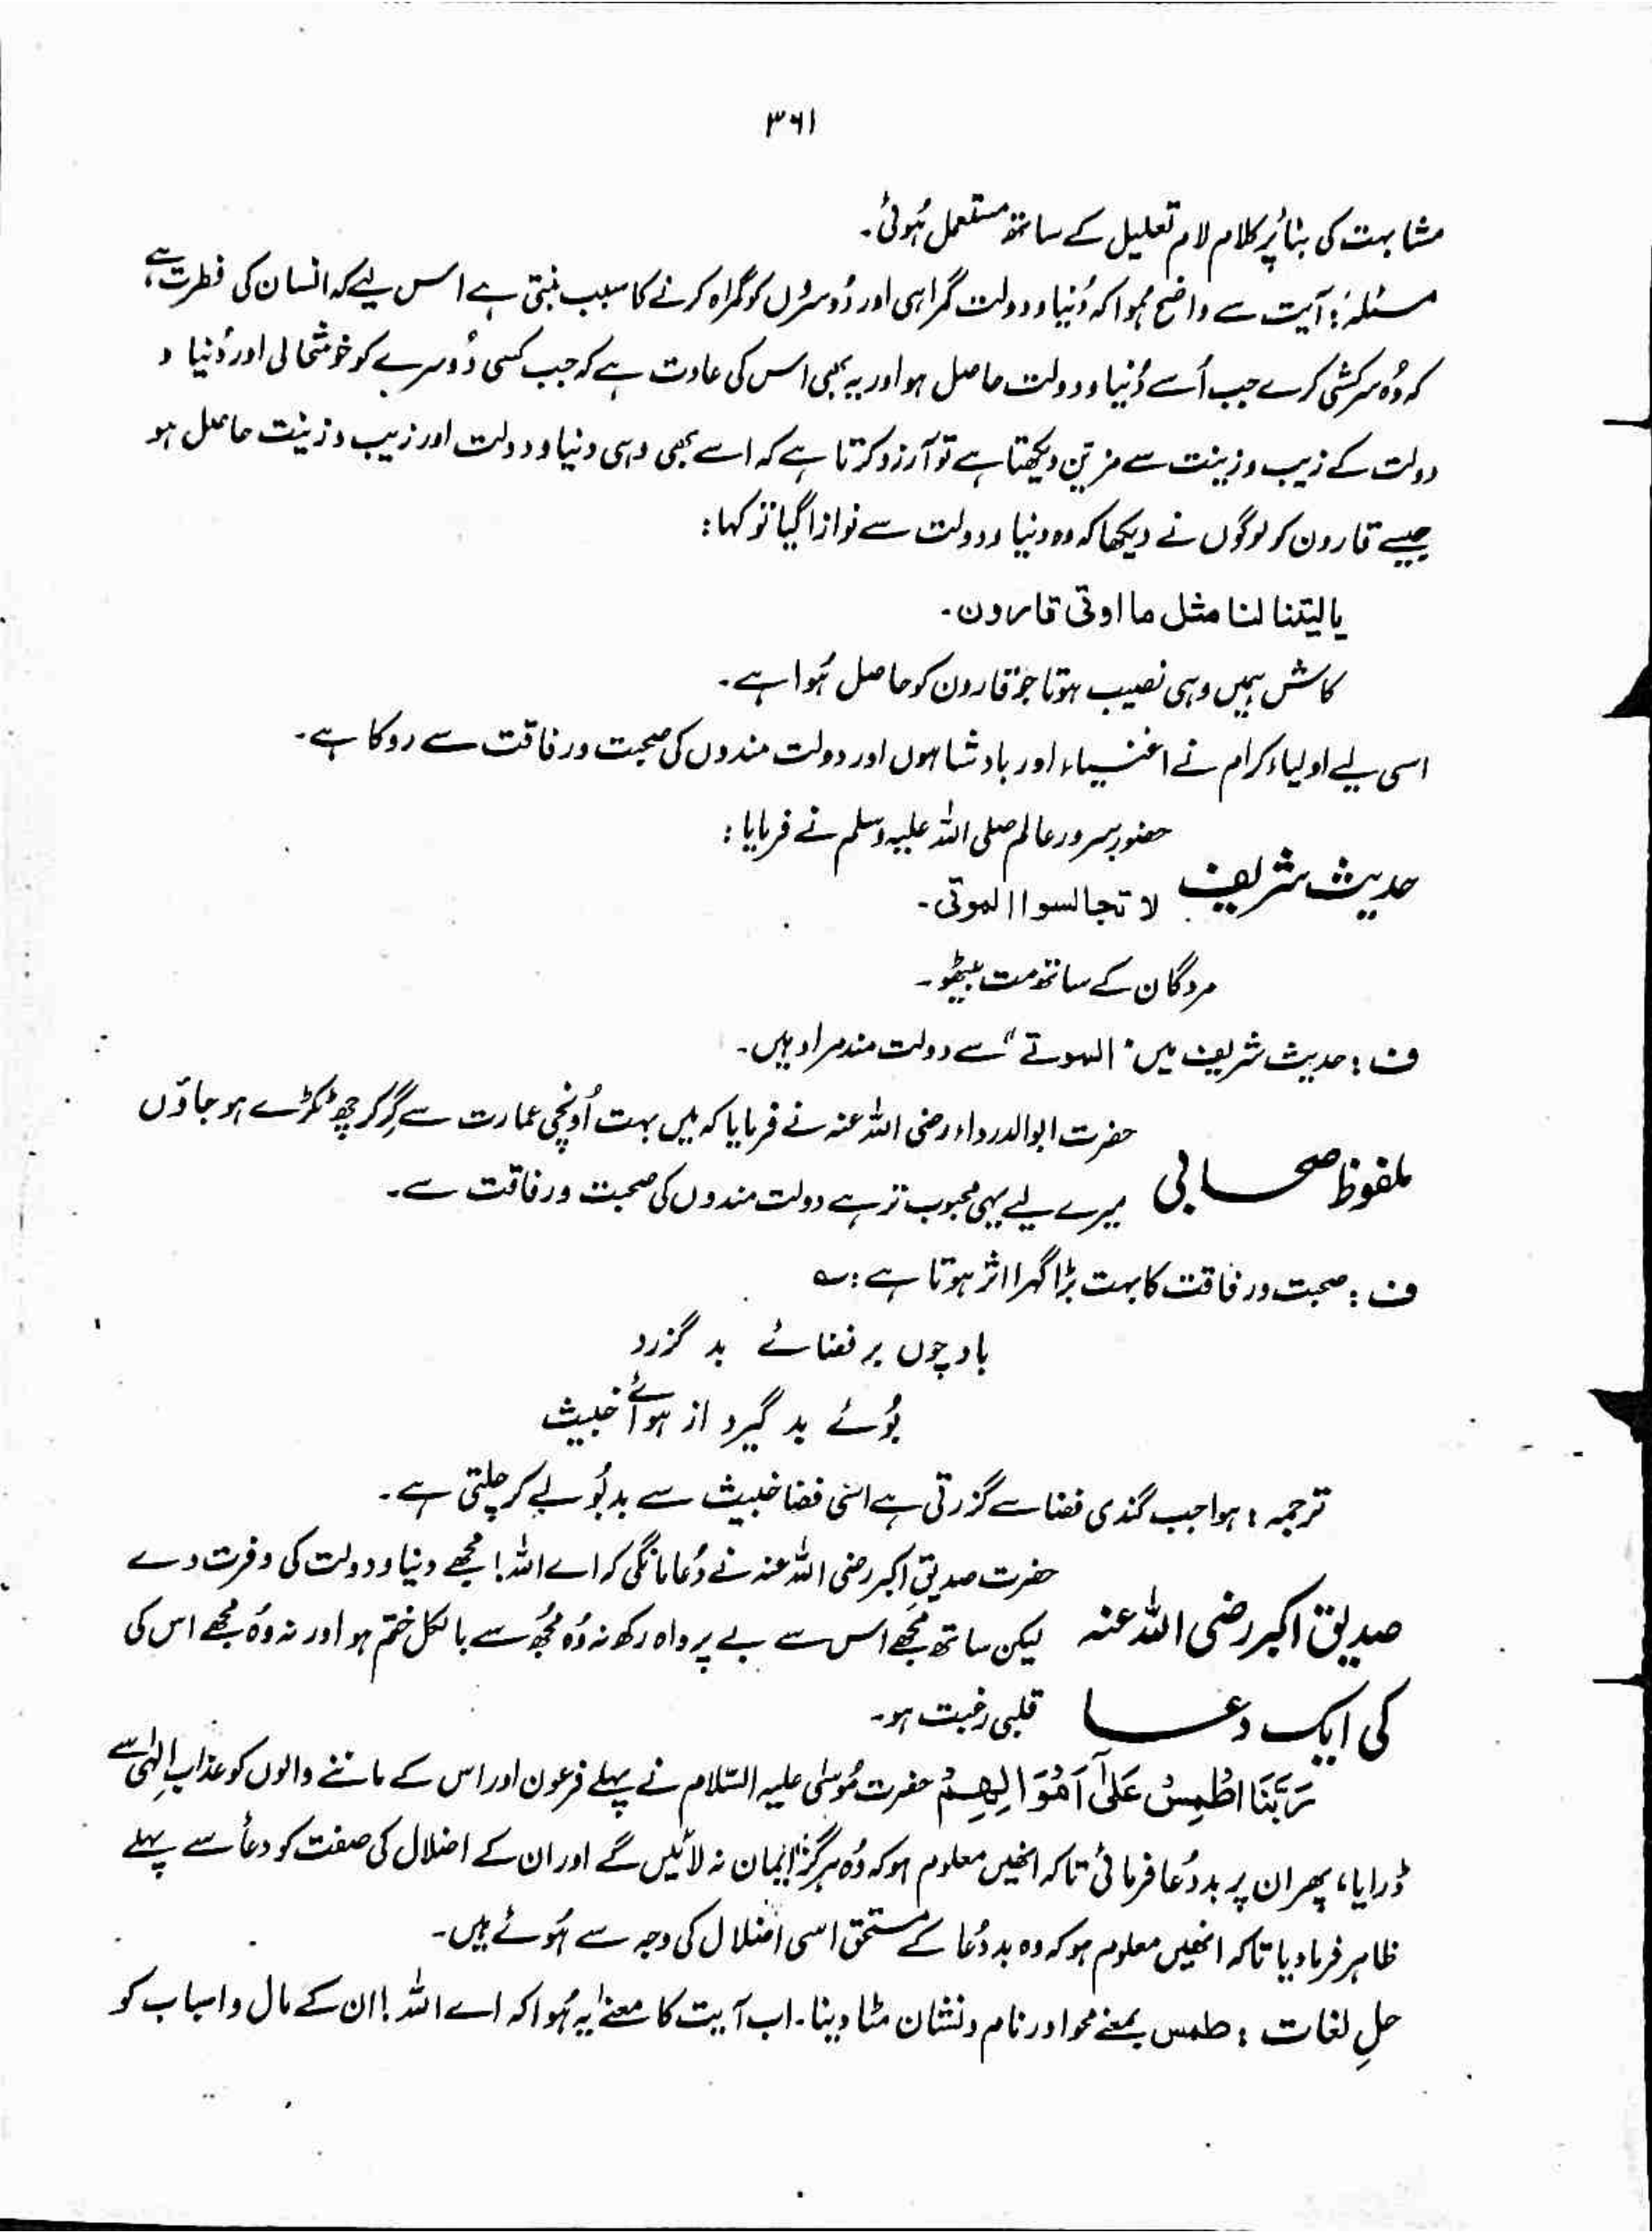 ۳۶۱
مشابہت کی بنا پر کلام لام تعلیل کے ساتھ مستعمل ہُوئی۔
مسئلہ: آیت سے واضح ہُوا کہ دُنیا و دولت گمراہی اور دُوسروں کو گمراہ کرنے کا سبب بنتی ہے اس لیے کہ انسان کی فطرت ہے،
کہ وُہ سرکشی کرے جب اُسے دُنیا و دولت حاصل ہو اور یہ بھی اس کی عادت ہے کہ جب کسی دُوسرے کو خوشحالی اور دُنیا و
دولت کے زیب و زینت سے مزین دیکھتا ہے تو آرزو کرتا ہے کہ اسے بھی وہی دنیا و دولت اور زیب و زینت حاصل ہو
جیسے قارون کو لوگوں نے دیکھا کہ وہ دنیا و دولت سے نوازا گیا تو کہا:
یالیتنا لنا مثل ما اوتی قارون۔
کاش ہمیں وہی نصیب ہوتا جو قارون کو حاصل ہُوا ہے۔
اسی لیے اولیاء کرام نے اغنیاء اور بادشاہوں اور دولت مندوں کی صحبت و رفاقت سے روکا ہے۔
حدیث شریف حضور سرور عالم صلی اللہ علیہ وسلم نے فرمایا:
لا تجالسوا الموتی۔
مردگان کے ساتھ مت بیٹھو۔
ف: حدیث شریف میں "الموتے" سے دولت مند مراد ہیں۔
ملفوظ صحابی حضرت ابوالدرداء رضی اللہ عنہ نے فرمایا کہ میں بہت اُونچی عمارت سے گِر کر چھ ٹکڑے ہو جاؤں
میرے لیے یہی محبوب تر ہے دولت مندوں کی صحبت و رفاقت سے۔
ف: صحبت و رفاقت کا بہت بڑا گہرا اثر ہوتا ہے: ؎
باد چوں بر فضائے بد گزرد
بُوئے بد گیرد از ہوائے خبیث
ترجمہ: ہوا جب گندی فضا سے گزرتی ہے اسی فضا خبیث سے بدبُو لے کر چلتی ہے۔
صدیق اکبر رضی اللہ عنہ حضرت صدیق اکبر رضی اللہ عنہ نے دُعا مانگی کہ اے اللہ! مجھے دنیا و دولت کی وفرت دے
لیکن ساتھ مجھے اس سے بے پرواہ رکھ نہ وُہ مجُھ سے بالکل ختم ہو اور نہ وُہ مجھے اس کی
کی ایک دعا قلبی رغبت ہو۔
رَبَّنَا اطْمِسْ عَلٰٓى اَمْوَالِهِمْ حضرت مُوسٰی علیہ السّلام نے پہلے فرعون اور اس کے ماننے والوں کو عذابِ الٰہی سے
ڈرایا، پھر ان پر بددُعا فرمائی تاکہ انھیں معلوم ہو کہ وُہ ہرگز ایمان نہ لائیں گے اور ان کے اضلال کی صفت کو دعا سے پہلے
ظاہر فرما دیا تاکہ انھیں معلوم ہو کہ وہ بددُعا کے مستحق اسی اضلال کی وجہ سے ہُوئے ہیں۔
حلِ لغات: طمس بمعنے محو اور نام و نشان مٹا دینا۔ اب آیت کا معنے یہ ہُوا کہ اے اللہ! ان کے مال و اسباب کو